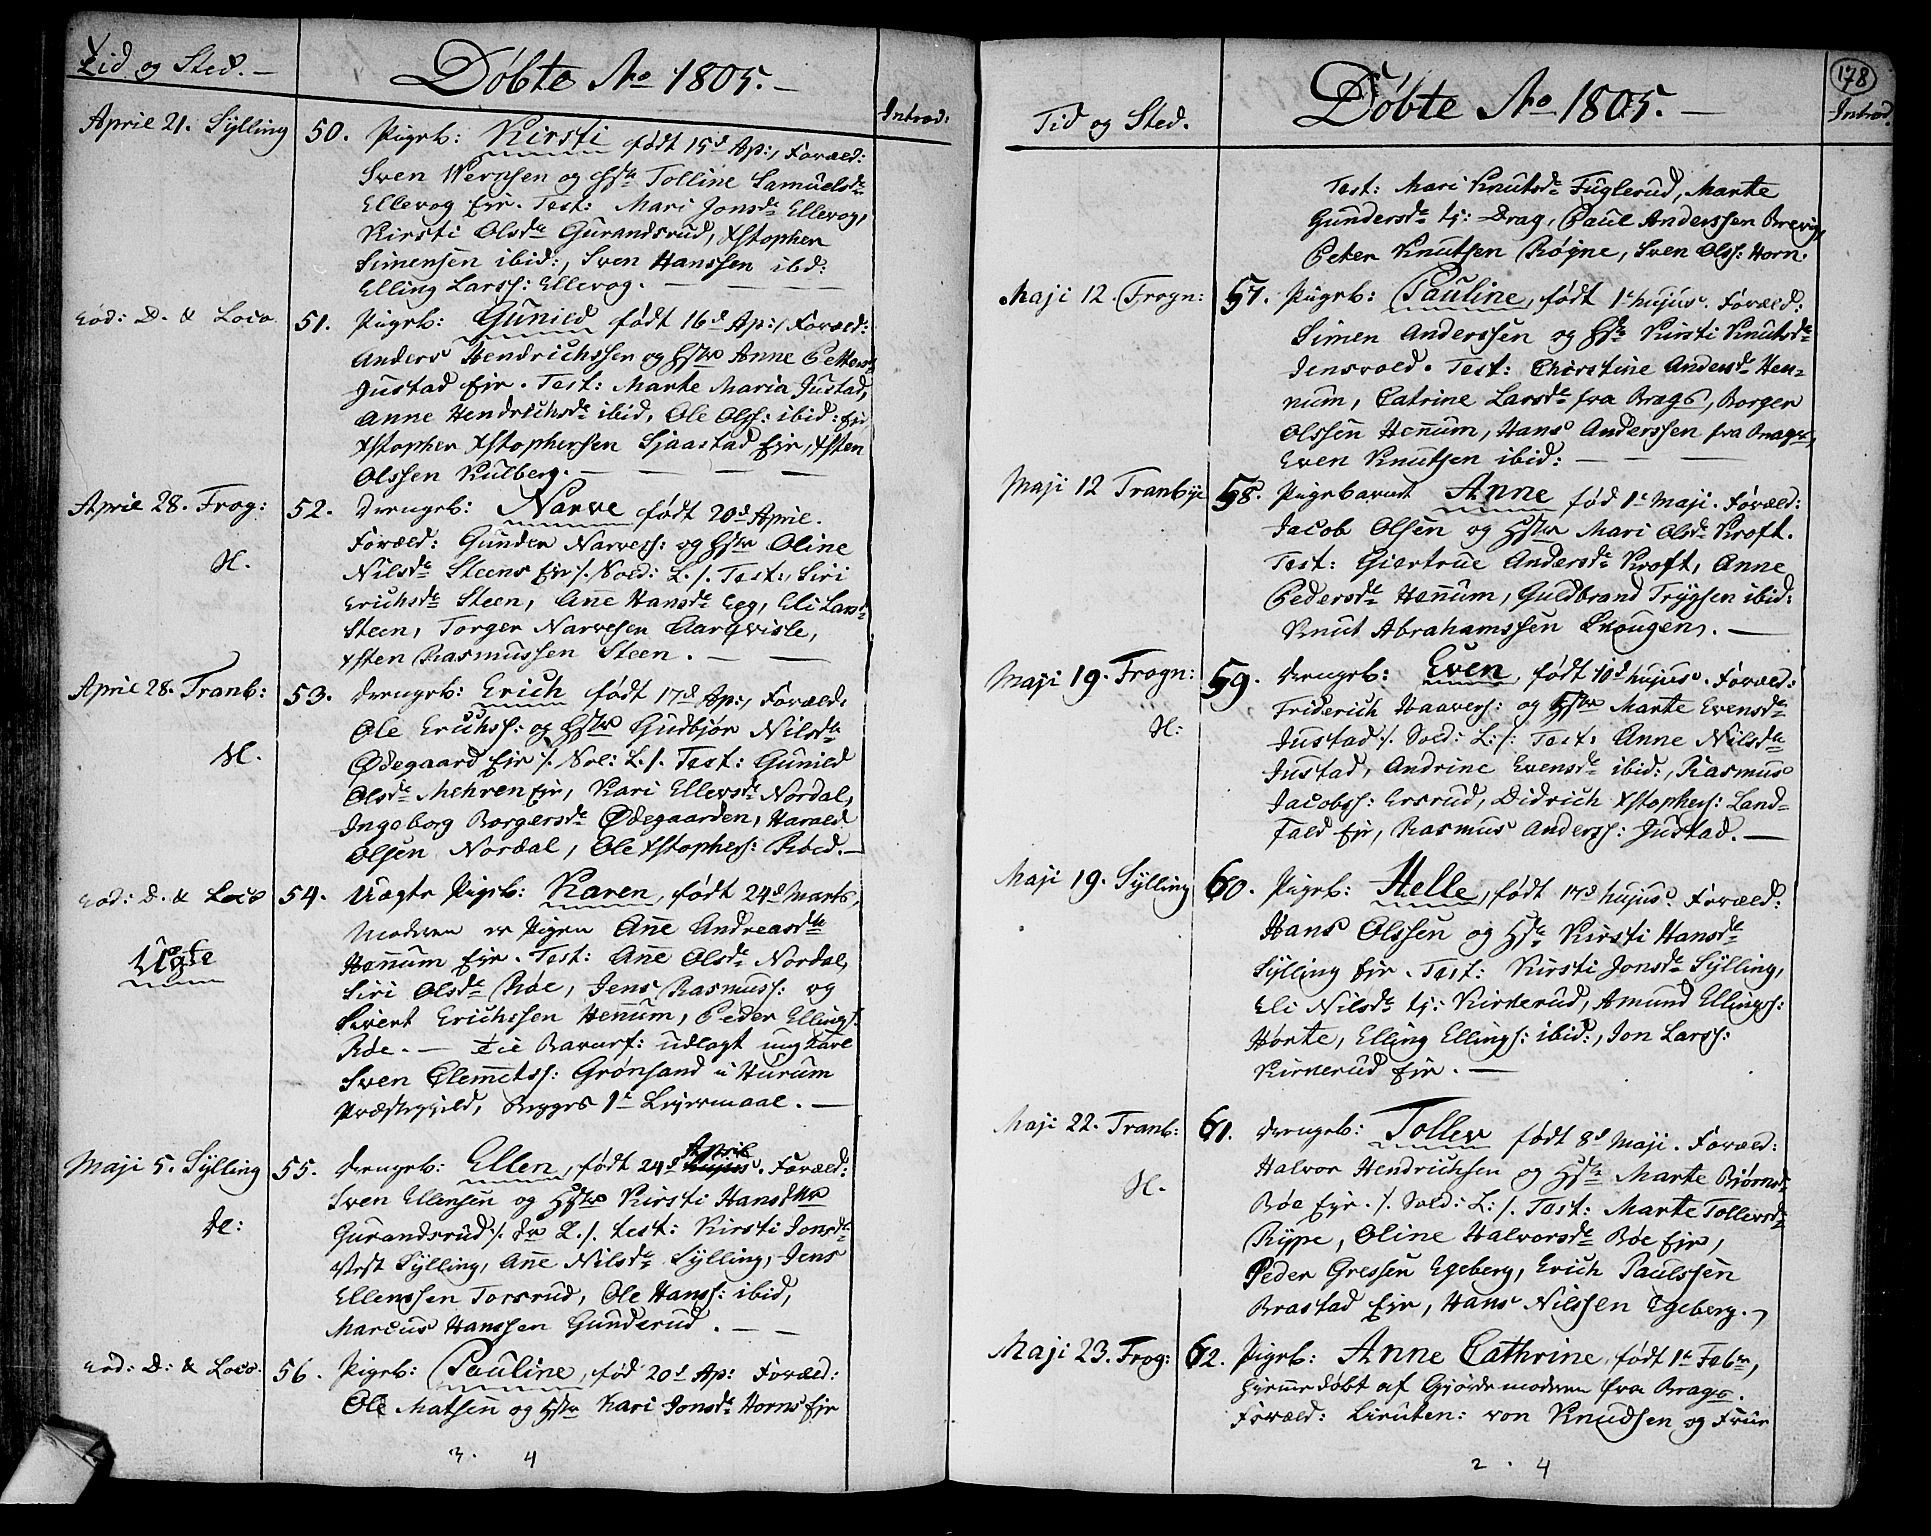 Tid og Sted. —
Døbte Ao 1805. —
Introd:
April 21. Sylling
50. Pigeb: Kirsti født 15d Ap:, Foræld:
Sven Wernsen og Hstr Tolline Samuelsdr
Ellevog Ejr. Test: Mari Jonsdr Ellevog,
Kirsti Olsdr Gurandsrud, Xstopher
Simensen ibid:, Sven Hanssen ibd:
Elling Larss: Ellevog. —
eod: D. & Loco
51. Pigeb: Gunild født 16d Ap:, Foræld:
Anders Hendrichssen og Hstr Anne Pettersdr
Justad Ejr. Test: Marte Maria Justad,
Anne Hendrichsdr ibid, Ole Olss: ibid: Ejr
Xstopher Xstophersen Sjaastad Ejr, Xsten
Olssen Kulberg. —
April 28. Frog:
H.
52. Drengeb: Narve født 20d April.
Foræld: Gunder Narvess: og Hstr Oline
Nilsdr Steens Ejr /. Sold: L./. Test:, Siri
Erichsdr Steen, Anne Hansdr Egg, Eli Larsdr
Steen, Torger Narvesen Aarqvisle,
Xsten Rasmussen Steen. —
April 28. Tranb:
H.
53. Drengeb: Erich født 17d Ap:, Foræld:
Ole Erichss: og Hstr Gudbjør Nilsdr
Ødegaard Ejr /. Sol: L./. Test: Gunild
Olsdr Mehren Ejr, Kari Ellevsdr Nordal,
Ingeborg Borgersdr Ødegaarden, Harald
Olsen Nordal, Ole Xstophers: Røed. —
eod: D. & Loco
Uægte
54. Uægte Pigeb: Karen, født 24d Marts,
Moderen er Pigen Anne Andreasdr
Hennum Ejr. Test: Anne Olsdr Nordal,
Siri Olsdr Røe, Jens Rasmuss: og
Sivert Erichssen Hennum, Peder Ellings:
Røe. — Til Barnef: udlagt ung Karl
Sven Clemets: Grønsand i Hurum
Præstegield, Begges 1te Leiermaal. —
Maji 5. Sylling
H:
55. Drengeb: Ellen, født 24d hujus April. Foræld:
Sven Ellensen og Hstr Kirsti Hansdtr
Gurandsrud /. Sr L./. test: Kirsti Jonsdr
Vest Sylling, Anne Nilsdr Sylling, Jens
Ellenssen Torsrud, Ole Hanss: ibid,
Marcus Hanssen Gunderud. —
eod: D: & Loco:
56. Pigeb: Pauline, fød 20d Ap: Foræld:
Ole Matsen og Hstr Kari Jonsdr Horns Ejr
3. 4
178
Tid og Sted.
Døbte Ao 1805. —
Introd.
Test: Mari Knutsdr Fuglerud, Marte
Gundersdr tj: Drag, Paul Anderssen Brevig,
Peter Knutsen Røgne, Sven Olss: Horn.
Maji 12. Frogn:
57. Pigeb: Pauline, født 1e hujus. Foræld:
Simen Anderssen og Hstr Kirsti Knutsdr
Jensvold. Test: Christine Andersdr Hen-
num, Catrine Larsdr fra Brags, Borger
Olssen Hennum, Hans Anderssen fra Brags,
Even Knutsen ibid: —
Maji 12 Tranbye
58. Pigebarnet Anne fød 1e Maji. Foræld:
Jacob Olsen og Hstr Mari Olsdr Kroft.
Test: Giertrue Andersdr Kroft, Anne
Pedersdr Hennum, Guldbrand Trygsen ibid:
Knut Abrahamssen Skougen. —
Maji 19. Frogn:
H:
59. Drengeb: Even, født 10d hujus. Foræld:
Friderich Haavers: og Hstr Marte Evensdr
Justad /. Sold: L:/: Test: Anne Nilsdr
Justad, Andrine Evensdr ibid:, Rasmus
Jacobss: Ersrud, Didrich Xstophers: Land-
fald Ejr, Rasmus Anderss: Justad. —
Maji 19. Sylling
60. Pigeb: Helle, født 17d hujus. Foræld:
Hans Olssen og Hstr Kirsti Hansdr
Sylling Ejr. Test: Kirsti Jonsdr Sylling,
Eli Nilsdr tj: Kirkerud, Amund Ellings:
Hørte, Elling Ellings: ibid:, Jon Larss:
Kirkerud Ejr. —
Maji 22. Tranb:
H.
61. Drengeb: Tollev født 8d Maji. Foræld:
Halvor Hendrichsen og Hstr Marte Bjørnsdr
Bøe Ejr. /. Sold: L:/. Test: Marte Tollevsdr
Rype, Oline Halvorsdr Bøe Ejr,
Peder Gressen Egeberg, Erich Paulssen
Brastad Ejr, Hans Nilssen Egeberg. —
Maji 23. Frog:
62. Pigeb: Anne Cathrine født 1te Febr,
Hjemmedøbt af Gjordemoderen fra Brags.
Foræld: Lieuten: von Knudsen og Frue
2. 4